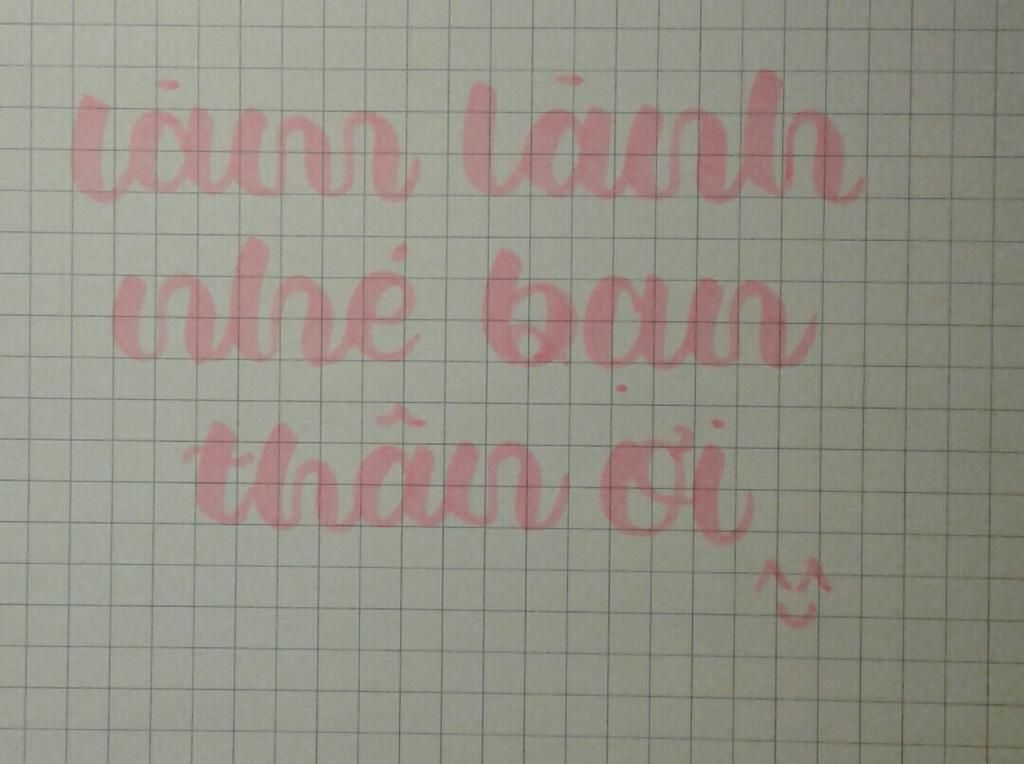 làm lành
nhé bạn
thân ơi